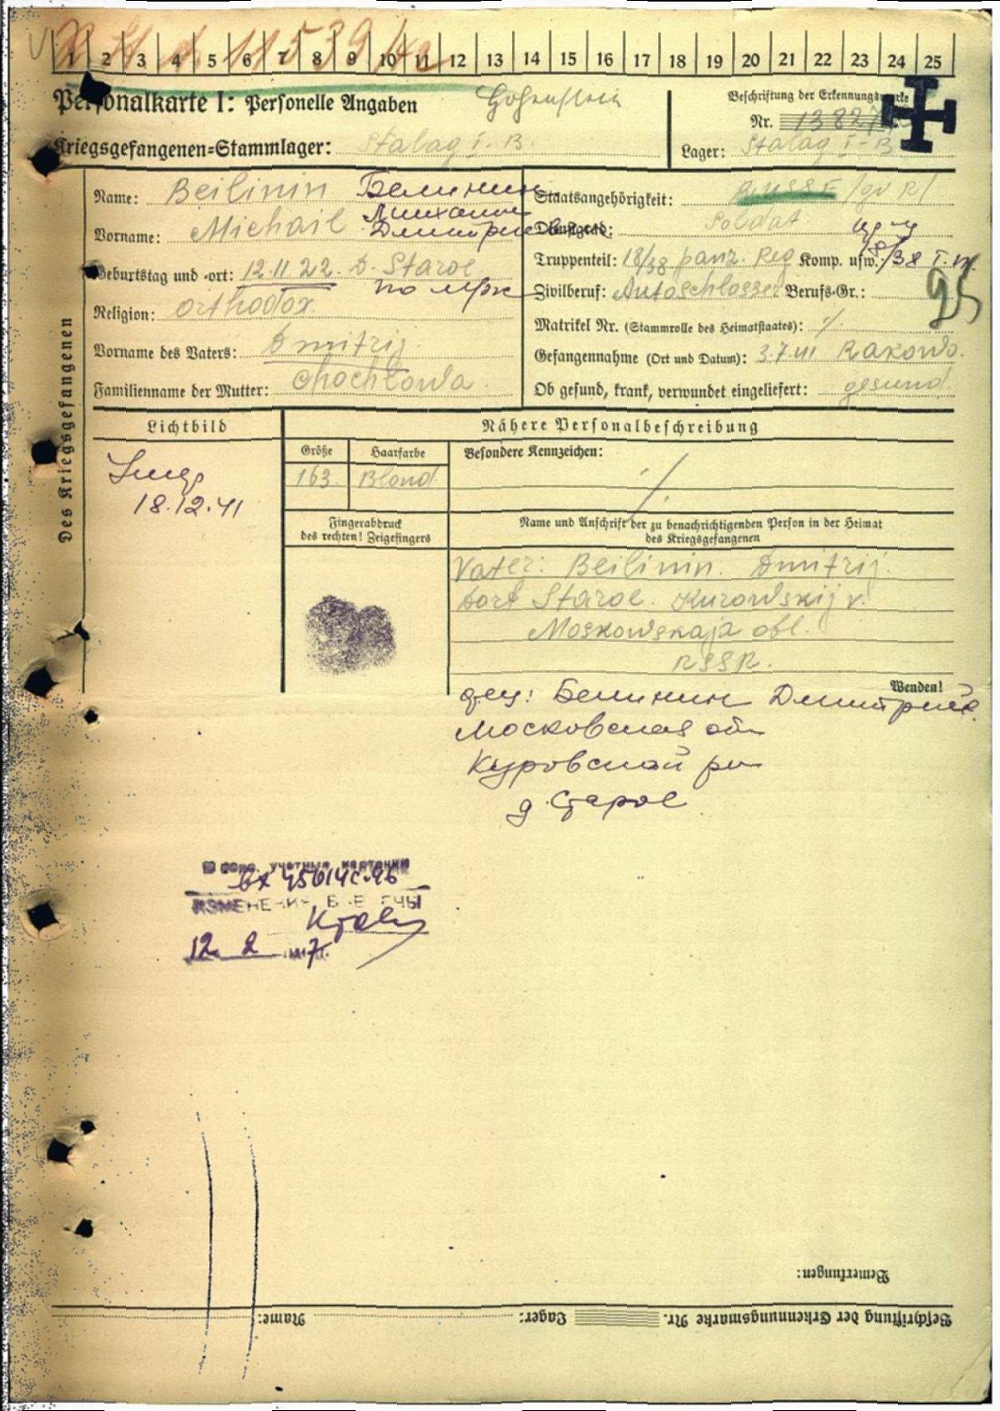 2 3 4 5 6 7 8 9 10 11 12 13 14 15 16 17 18 19 20 21 22 23 24 25
Personalkarte I: Personelle Angaben
Hohenstein
Kriegsgefangenen=Stammlager: Stalag I-B.
Beschriftung der Erkennungsmarke
Nr. 13827
Lager: Stalag I-B
Des Kriegsgefangenen
Name: Beilinin Белинин
Vorname: Michail Михаил
Дмитриевич
Geburtstag und -ort: 12.11 22. D. Staroe
Religion: orthodox
Vorname des Vaters: Dmitrij
Familienname der Mutter: Chochlowa
Staatsangehörigkeit: RUSSE
Dienstgrad: Soldat
Truppenteil: 18/38 panz. Reg Komp. usw.:
Zivilberuf: Autoschlosser Berufs-Gr.:
25
Matrikel Nr. (Stammrolle des Heimatstaates): ·/.
Gefangennahme (Ort und Datum): 3.7.41 Rakowo.
Ob gesund, krank, verwundet eingeliefert: gesund.
Lichtbild
18.12.41
Nähere Personalbeschreibung
Größe Haarfarbe Besondere Kennzeichen:
163 Blond ·/.
Fingerabdruck
des rechten! Zeigefingers
Name und Anschrift der zu benachrichtigenden Person in der Heimat
des Kriegsgefangenen
Vater: Beilinin. Dmitrij.
Dorf Staroe. Kurowskij r.
Moskowskaja obl.
RSSR.
Wenden!
отец: Белинин Дмитрий.
Московская об
Куровской рн
д. Старое
учетная карточка
12 2
Bemerkungen:
Name: Lager: Beschriftung der Erkennungsmarke Nr.